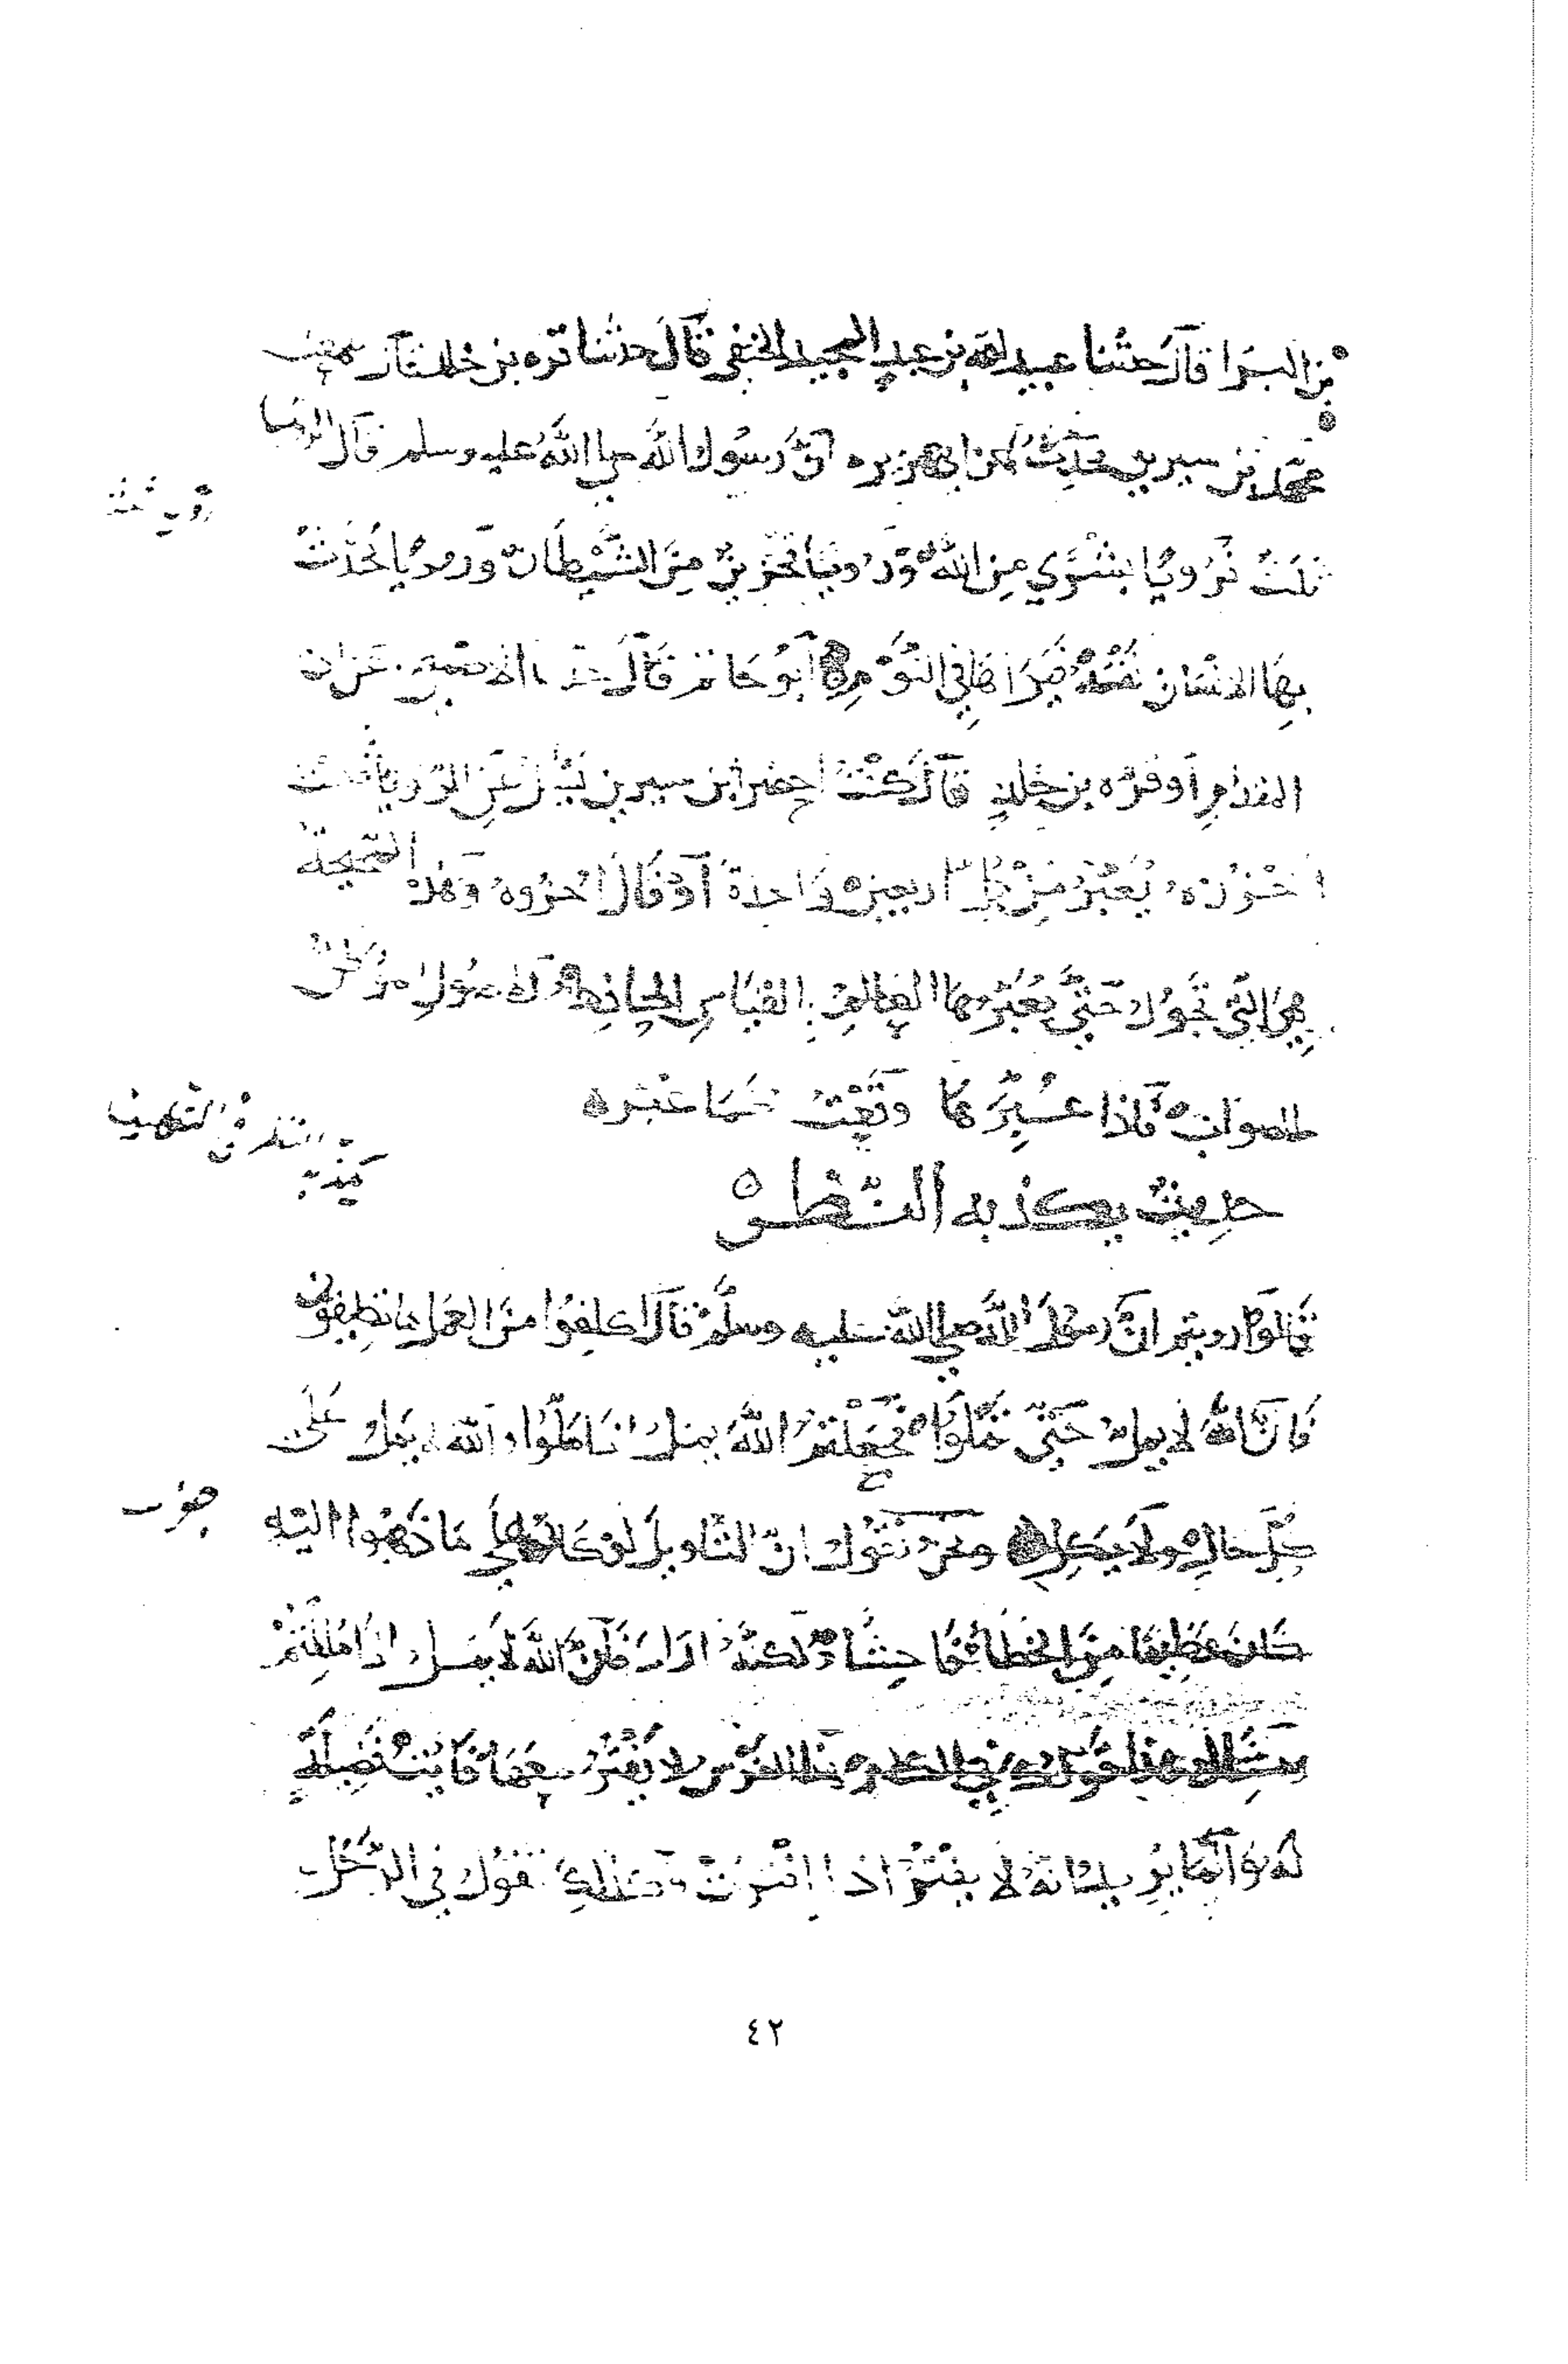 بن البرا قال حدثنا عبيد الله بن عبد المجيد الحنفي قال حدثنا قره بن خلد قال سمعت
محمد بن سيرين يحدث عن ابي هريره ان رسول الله صلى الله عليه وسلم قال الرويا
ثلث فرويا بشرى من الله ورويا تحزين من الشيطان ورويا يحدث
بها الانسان نفسه فيراها في النوم ابو حاتم قال حدثنا الاصمعي عن ابن
المقدام او قره بن خلد قال كنت احضر ابن سيرين يسئل عن الرويا فكنت
احزره يعبر من كل اربعين واحدة او قال احزوه وهذه الصحيحة
هي التي تجول حتى يعبرها العالم بالقياس الحافظ
للصواب فاذا عبرها وقعت كما عبره
حديث يكذبه النظر
قالوا رويتم ان رسول الله صلى الله عليه وسلم قال اكلفوا من العمل ما تطيقون
فان الله لا يمل حتى تملوا فجعلتم الله يمل اذا ملوا والله لا يمل على
كل حال ولا يكل ونحن نقول ان التاويل لو كان على ما ذهبوا اليه
كان عظيما من الخطا فاحشا ولكنه اراد فان الله لا يمل اذا مللتم
ومثال هذا قولك في الكلام هذا الفرس لا يفتر
له وانما يريد بانه لا يفتر اذا افترت وكذلك تقول في الرجل
جواب
٤٢